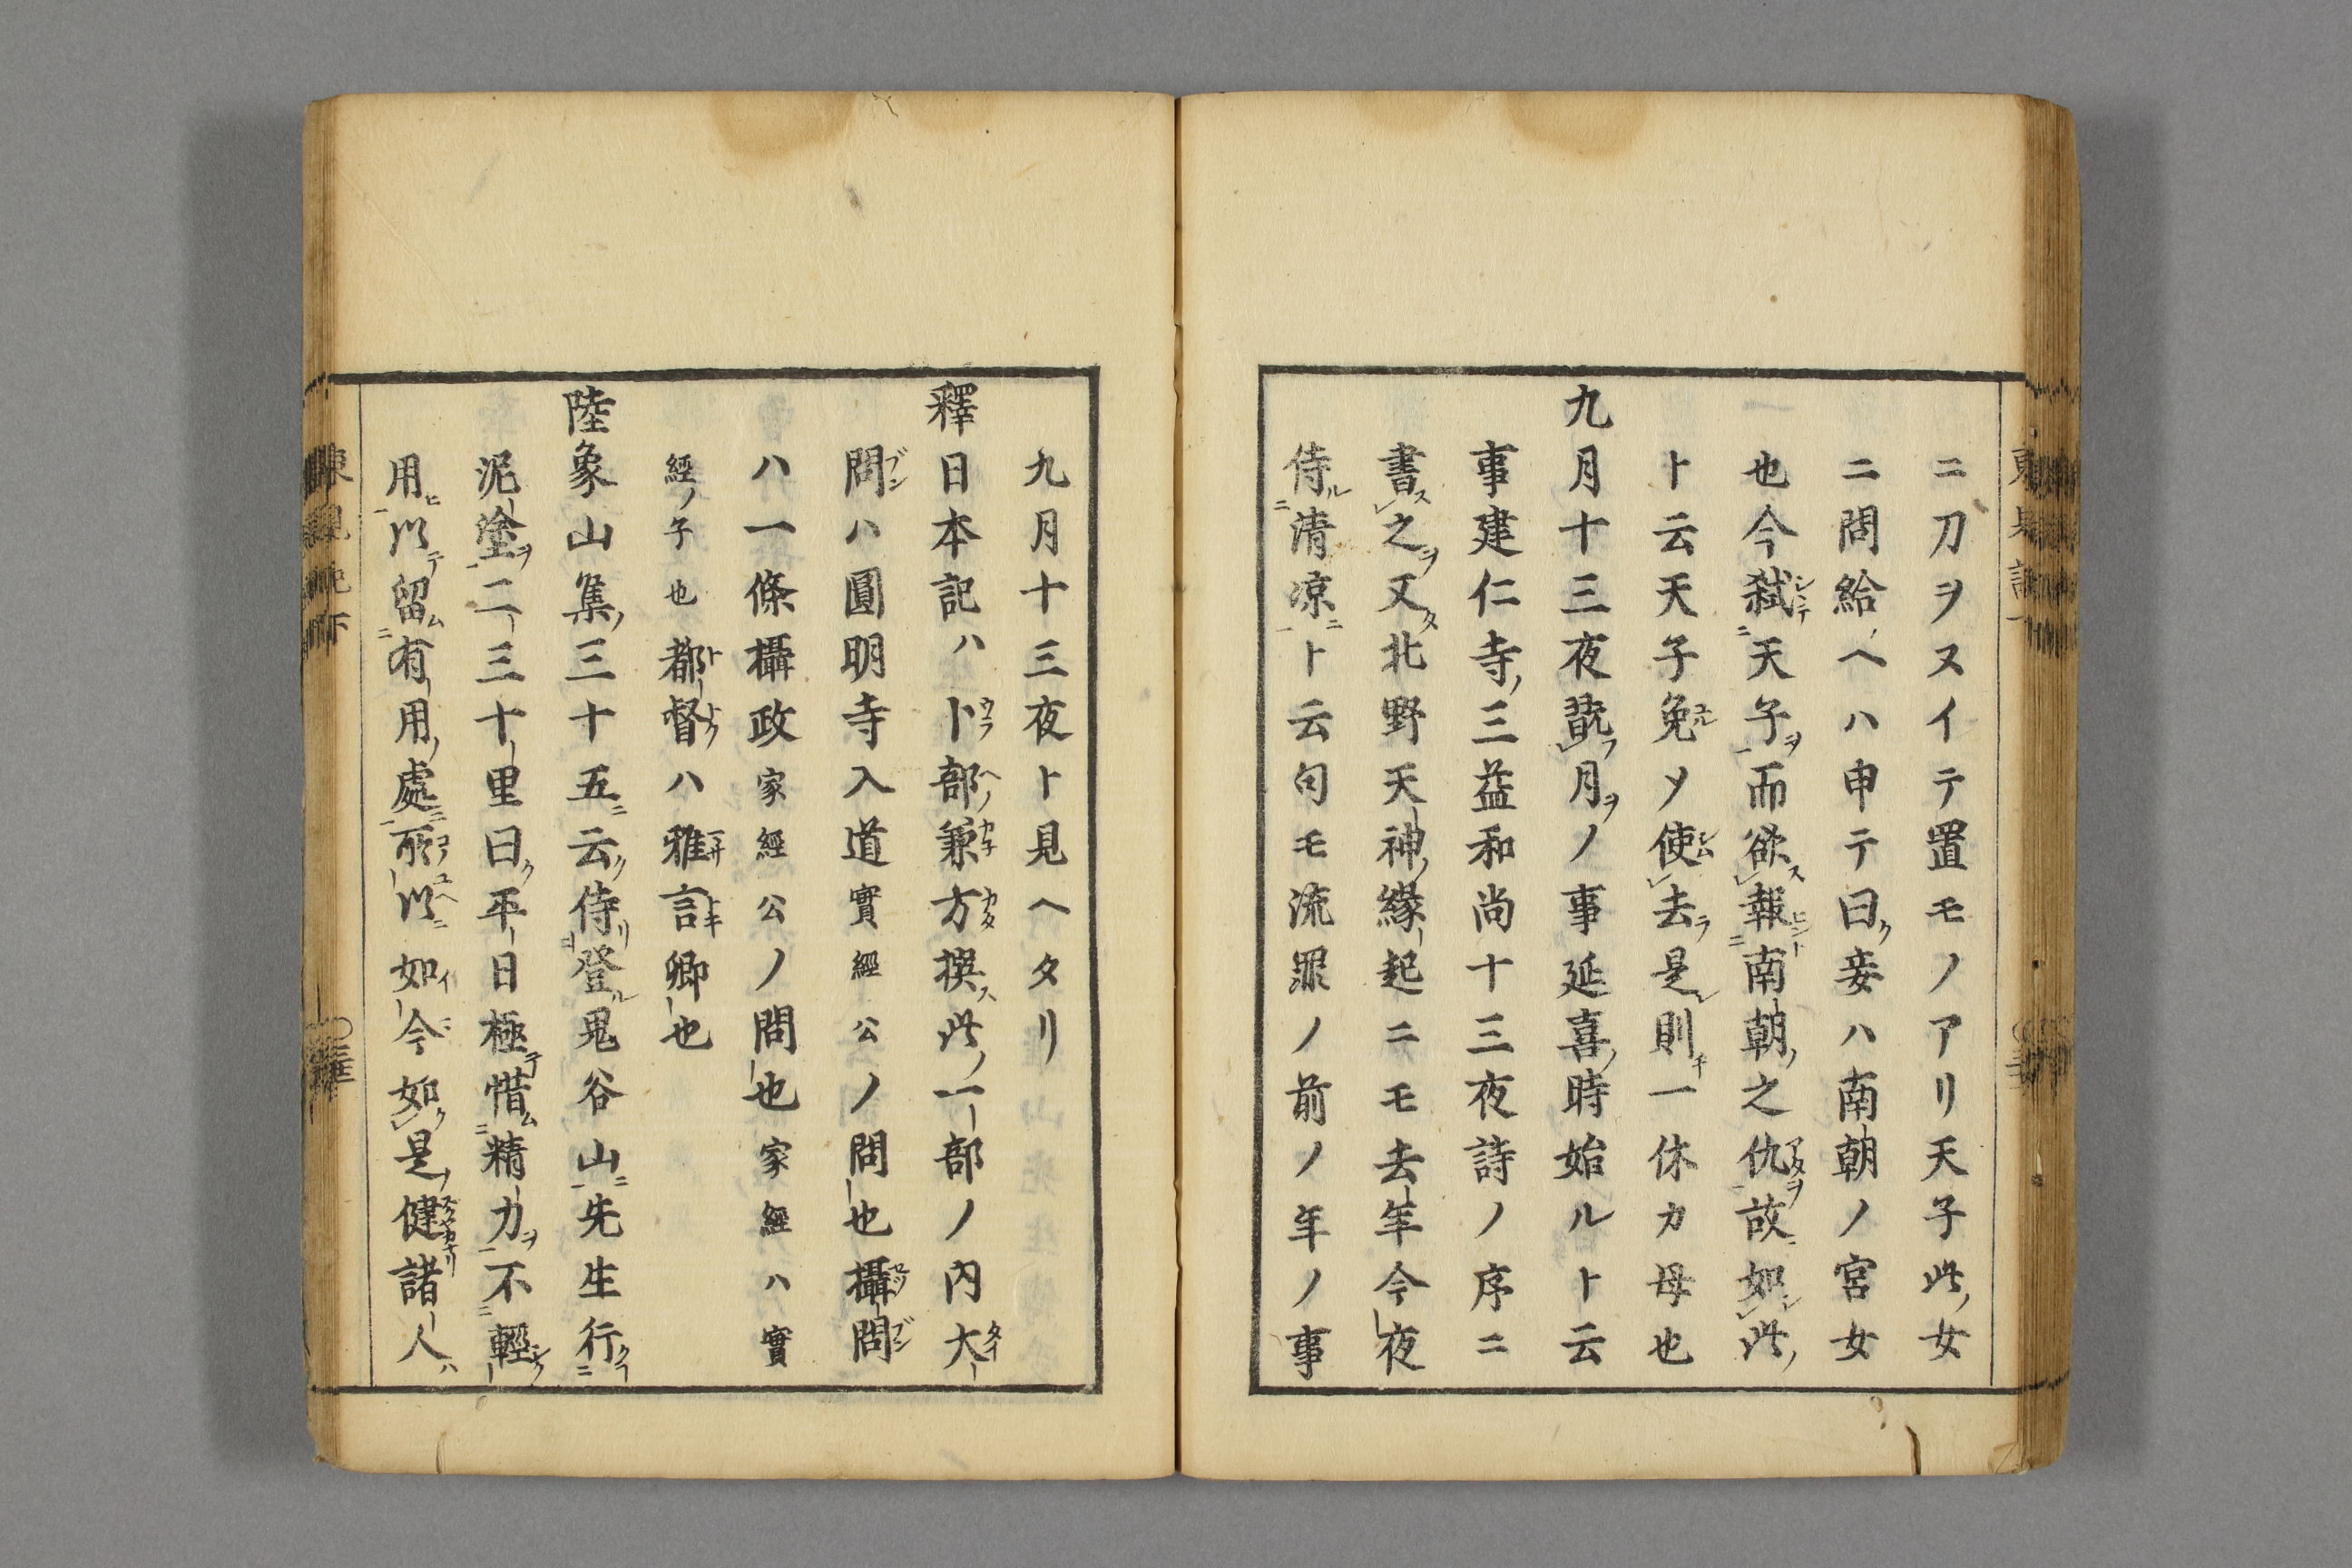 ニ刀ヲヌイテ置モノアリ天子此女
ニ問給ヘハ申テ曰妾ハ南朝ノ宮女
也今弑天子而欲報南朝之仇故如此
ト云天子免メ使去是則一休カ母也
九月十三夜翫月ノ事延喜時始ルト云
事建仁寺三益和尚十三夜詩ノ序ニ
書之又北野天神縁起ニモ去年今夜
侍清凉ト云句モ流罪ノ前ノ年ノ事
九月十三夜ト見ヘタリ
釋日本記ハ卜部兼方撰此一部ノ内大
問ハ圓明寺入道實經公ノ問也攝問
ハ一條攝政家經公ノ問也家經ハ實
經ノ子也都督ハ雅言卿也
陸象山集三十五云侍登鬼谷山先生行
泥塗二三十里曰平日極惜精力不輕
用以留有用處所以如今如是健諸人